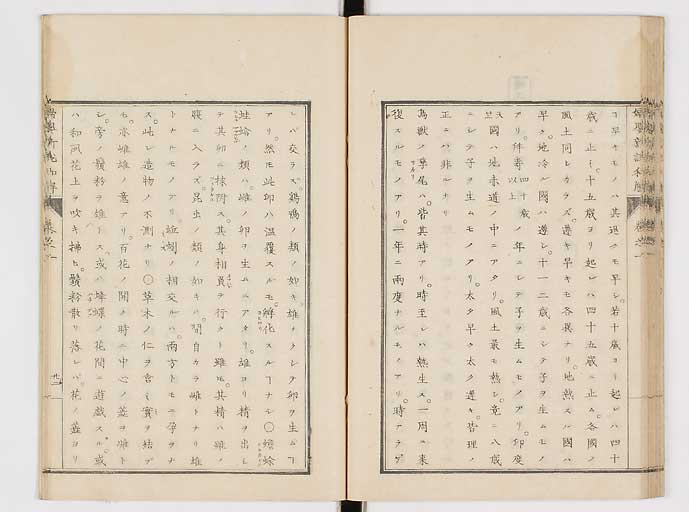 コ早キモノハ其退クモ早シ若十歳ヨリ起レハ四十
歳ニ止ミ十五歳ヨリ起レハ四十五歳ニ止ム各國ノ
風土同シカラズ遲キ早キモ各異ナリ地熱スル國ハ
早ク地冷ル國ハ遲シ十一二歳ニシテ子ヲ生ムモノ
アリ四十歳以上ノ年ニシテ子ヲ生ムモノアリ印度
國ハ地赤道ノ中ニアタリ風土最モ熱シ竟ニ八歳
ニシテ子ヲ生ムモノアリ太タ早ク太タ遲キ皆理ノ
正ニハ非ルナリ
鳥獣ノ孳尾ハ皆其時アリ時至レハ熱生ス一周ニ来
復スルモノアリ一年ニ兩度ナルモノアリ時アラザ
レバ交ラズ鷄鴨ノ類ノ如キ雄ナクシテ卵ヲ生ムコト
アリ然モ此卵ハ温覆スルモ孵化スルコトナシ〇蟾蜍
蛙蛤ノ類ハ雌ノ卵ヲ生ムニアタリ雄ヨリ精ヲ出シ
テ其卵ニ附ス其身相負テ行クト雖モ其精ハ雌ノ
竅ニ入ラズ昆虫ノ類ノ如キハ間自カラ雌トナリ雄
トナルモノアリ蚯蚓ノ相交ルハ兩方トモニ孕ヲナ
ス此レ造物ノ不測ナリ〇草木ノ仁ヲ含ミ實ヲ結ブ
モ亦雌雄ノ意アリ百花ノ開ク時ニ中心ノ蕊ヲ雌ト
シ旁ノ鬚粉ヲ雄トス或ハ蜂蝶ノ花間ニ遊戯スル或
ハ和風花上ヲ吹キ掃ヒ鬚粉散リ落レバ花ノ蕊ヨリ